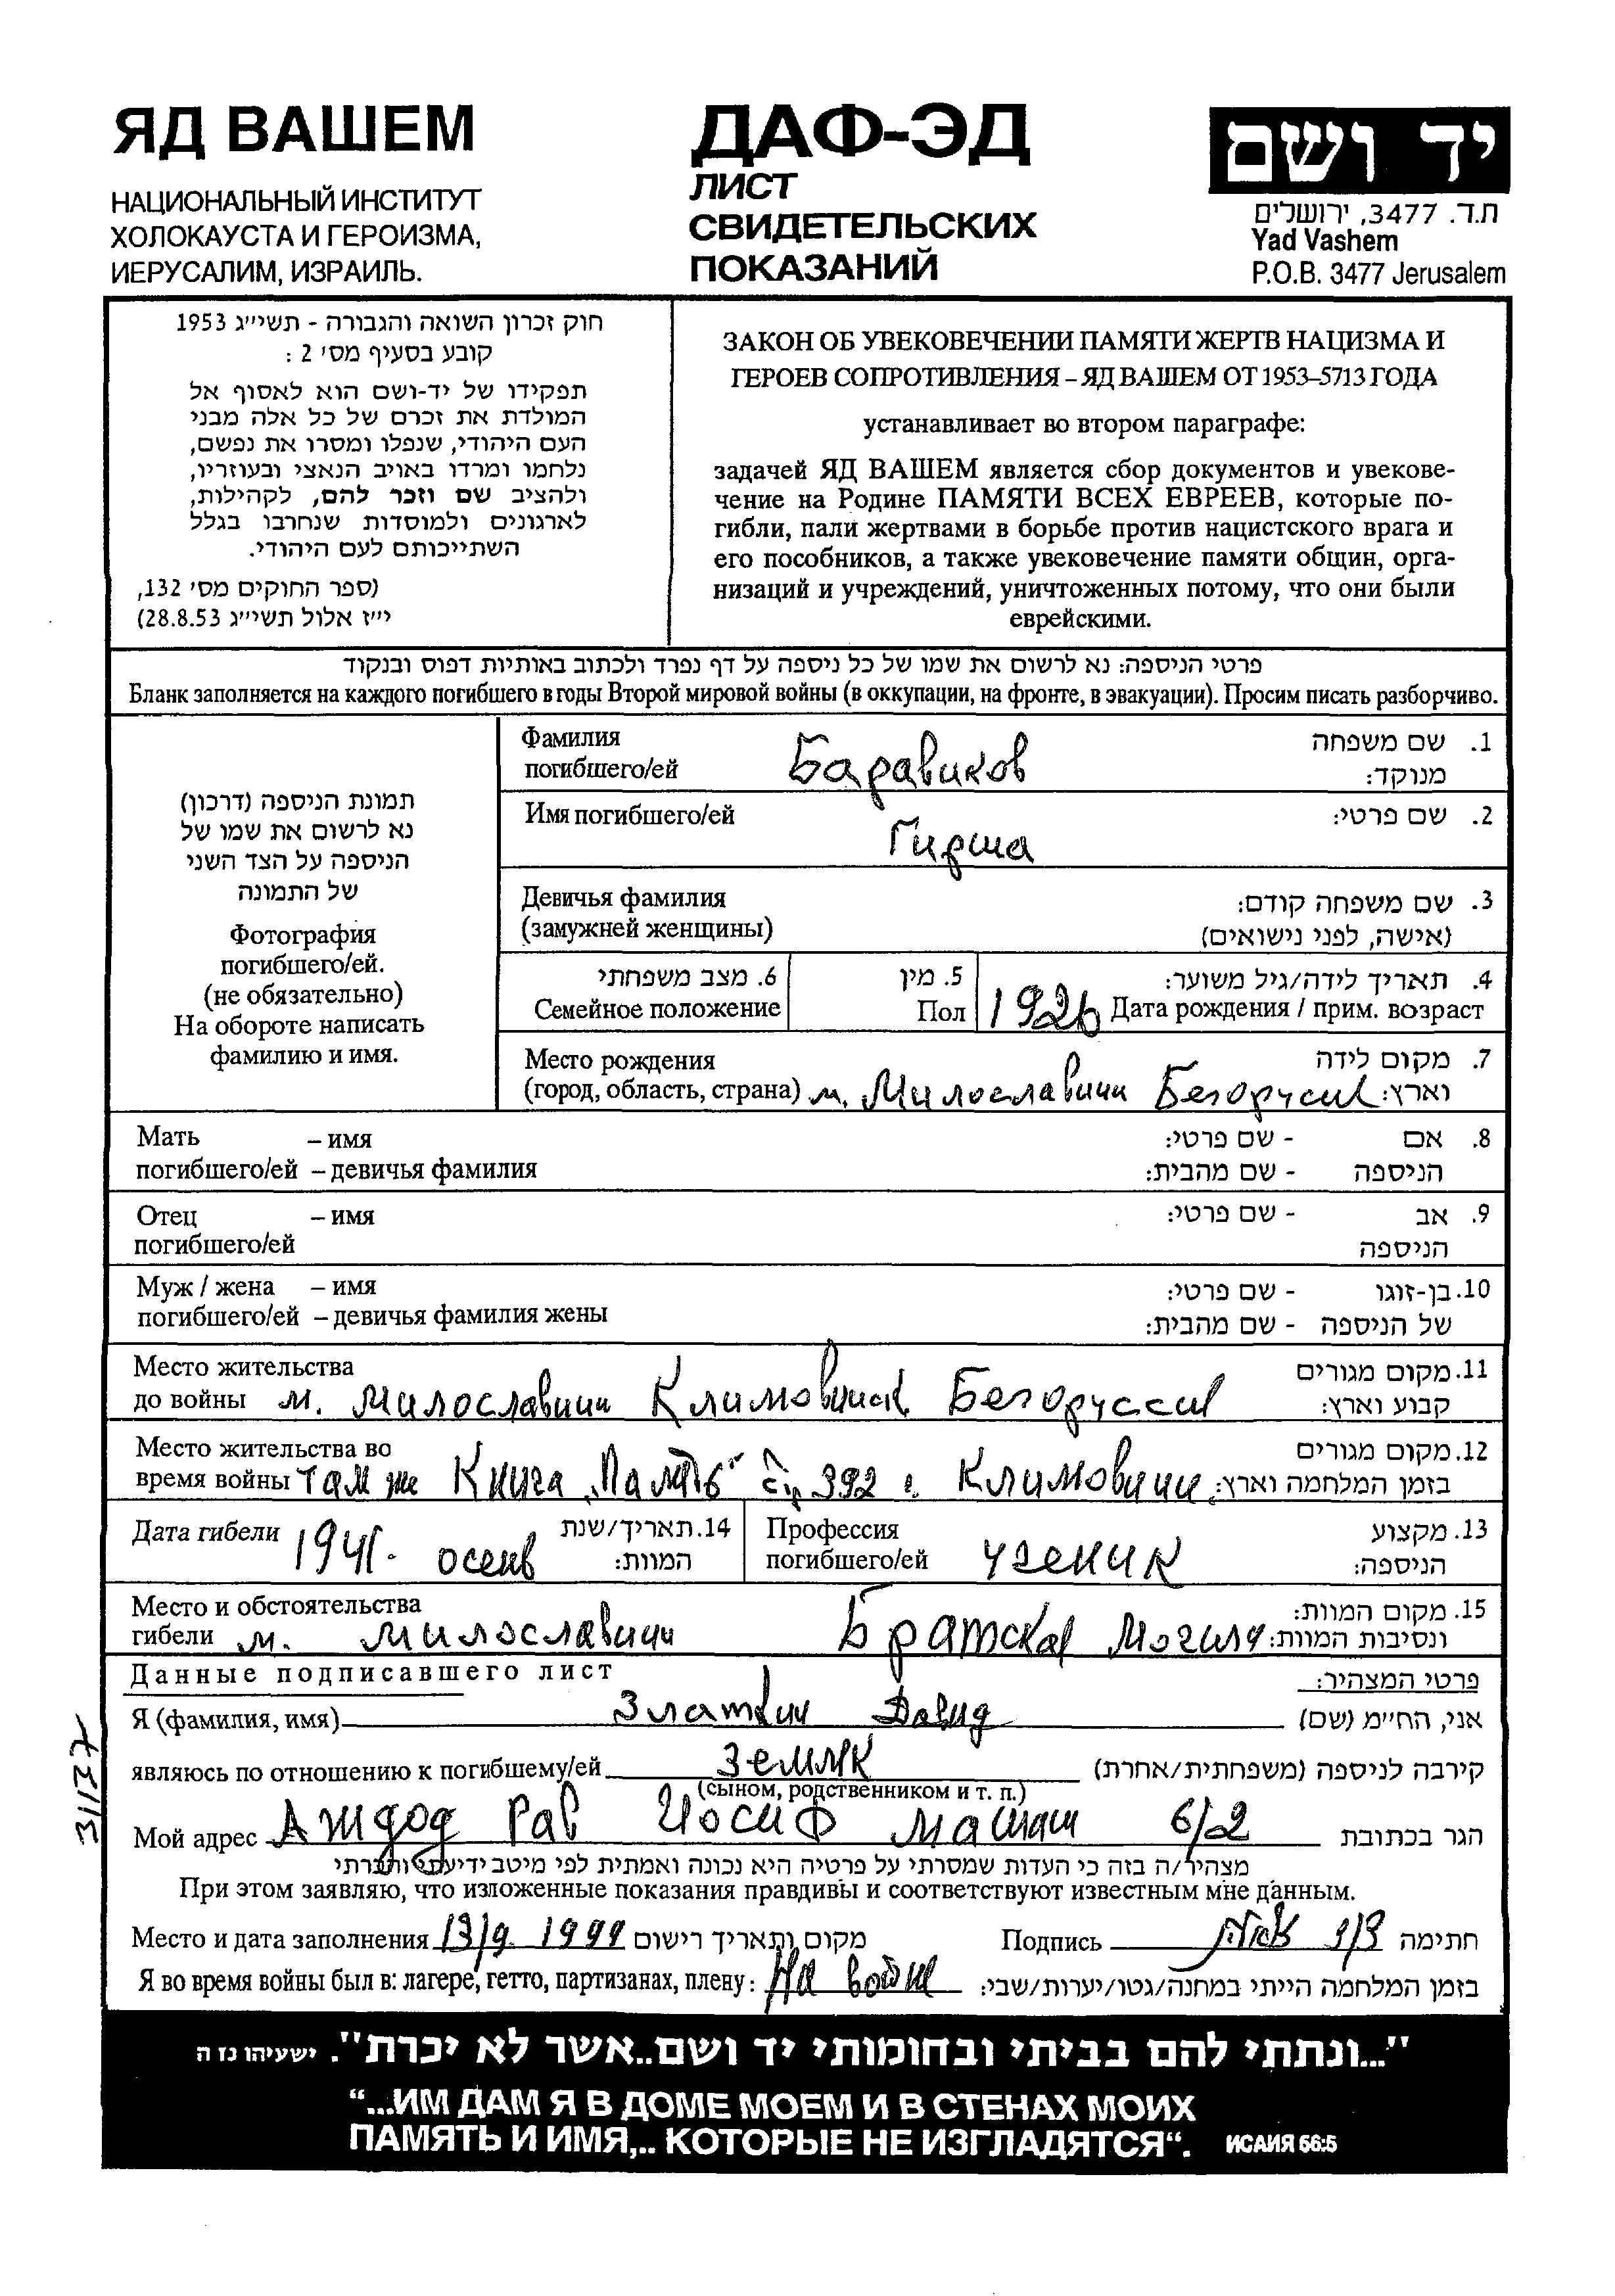 ЯД ВАШЕМ
НАЦИОНАЛЬНЫЙ ИНСТИТУТ
ХОЛОКАУСТА И ГЕРОИЗМА,
ИЕРУСАЛИМ, ИЗРАИЛЬ.
ДАФ-ЭД
ЛИСТ
СВИДЕТЕЛЬСКИХ
ПОКАЗАНИЙ
יד ושם
ת.ד. 3477, ירושלים
Yad Vashem
P.O.B. 3477 Jerusalem
חוק זכרון השואה והגבורה - תשי״ג 1953
קובע בסעיף מס׳ 2 :
תפקידו של יד-ושם הוא לאסוף אל
המולדת את זכרם של כל אלה מבני
העם היהודי, שנפלו ומסרו את נפשם,
נלחמו ומרדו באויב הנאצי ובעוזריו,
ולהציב שם וזכר להם, לקהילות,
לארגונים ולמוסדות שנחרבו בגלל
השתייכותם לעם היהודי.
(ספר החוקים מס׳ 132,
י״ז אלול תשי״ג 28.8.53)
ЗАКОН ОБ УВЕКОВЕЧЕНИИ ПАМЯТИ ЖЕРТВ НАЦИЗМА И
ГЕРОЕВ СОПРОТИВЛЕНИЯ – ЯД ВАШЕМ ОТ 1953–5713 ГОДА
устанавливает во втором параграфе:
задачей ЯД ВАШЕМ является сбор документов и увекове-
чение на Родине ПАМЯТИ ВСЕХ ЕВРЕЕВ, которые по-
гибли, пали жертвами в борьбе против нацистского врага и
его пособников, а также увековечение памяти общин, орга-
низаций и учреждений, уничтоженных потому, что они были
еврейскими.
פרטי הניספה: נא לרשום את שמו של כל ניספה על דף נפרד ולכתוב באותיות דפוס ובנקוד
Бланк заполняется на каждого погибшего в годы Второй мировой войны (в оккупации, на фронте, в эвакуации). Просим писать разборчиво.
תמונת הניספה (דרכון)
נא לרשום את שמו של
הניספה על הצד השני
של התמונה
Фотография
погибшего/ей.
(не обязательно)
На обороте написать
фамилию и имя.
Фамилия 1. שם משפחה
погибшего/ей Баравиков מנוקד:
Имя погибшего/ей Гирша 2. שם פרטי:
Девичья фамилия 3. שם משפחה קודם:
(замужней женщины) (אישה, לפני נישואים)
6. מצב משפחתי 5. מין 4. תאריך לידה/גיל משוער:
Семейное положение Пол 1926 Дата рождения / прим. возраст
Место рождения 7. מקום לידה
(город, область, страна) м. Милославичи Белорусии וארץ:
Мать – имя 8. אם - שם פרטי:
погибшего/ей – девичья фамилия הניספה - שם מהבית:
Отец – имя 9. אב - שם פרטי:
погибшего/ей הניספה
Муж / жена – имя 10. בן-זוגו - שם פרטי:
погибшего/ей – девичья фамилия жены של הניספה - שם מהבית:
Место жительства 11. מקום מגורים
до войны м. Милославичи Белоруссии קבוע וארץ:
Место жительства во 12. מקום מגורים
время войны там же Книга „Память" стр 392 г. Климовичи בזמן המלחמה וארץ:
Дата гибели 1941г. осень 14. תאריך/שנת המוות:
Профессия погибшего/ей ученик 13. מקצוע הניספה:
Место и обстоятельства 15. מקום המוות:
гибели м. Милославичи Братская могила ונסיבות המוות:
Данные подписавшего лист פרטי המצהיר:
Я (фамилия, имя) Златкин Давид אני, החי״מ (שם)
являюсь по отношению к погибшему/ей земляк קירבה לניספה (משפחתית/אחרת)
(сыном, родственником и т. п.)
Мой адрес Аждод Рав Иосиф машаш 6/2 הגר בכתובת
מצהיר/ה בזה כי העדות שמסרתי על פרטיה היא נכונה ואמתית לפי מיטב ידיעתי והכרתי
При этом заявляю, что изложенные показания правдивы и соответствуют известным мне данным.
Место и дата заполнения 13/9. 1999 מקום ותאריך רישום Подпись חתימה
Я во время войны был в: лагере, гетто, партизанах, плену: На войне בזמן המלחמה הייתי במחנה/גטו/יערות/שבי:
31137
"...ונתתי להם בביתי ובחומותי יד ושם..אשר לא יכרת". ישעיהו נז ה
“...ИМ ДАМ Я В ДОМЕ МОЕМ И В СТЕНАХ МОИХ
ПАМЯТЬ И ИМЯ,.. КОТОРЫЕ НЕ ИЗГЛАДЯТСЯ“. ИСАИЯ 56:5